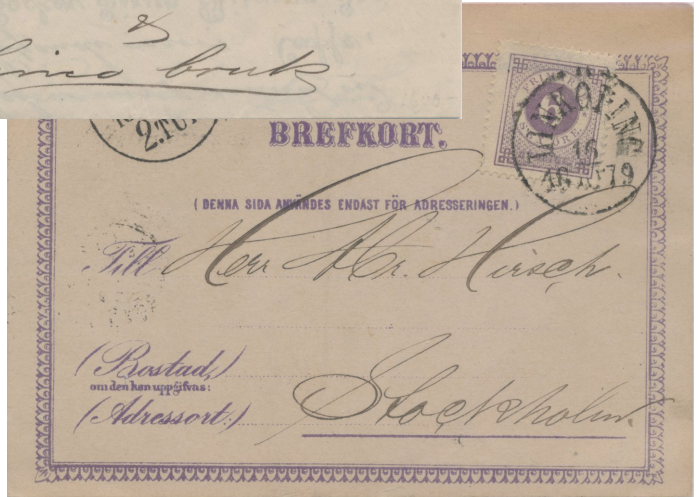 &
bruk
2.TUR
BREFKORT.
LINKÖPING
16
1879
(DENNA SIDA ANVÄNDES ENDAST FÖR ADRESSERINGEN.)
Till Herr Hirsch.
(Bostad,)
om den kan uppgifvas:
(Adressort.) Stockholm